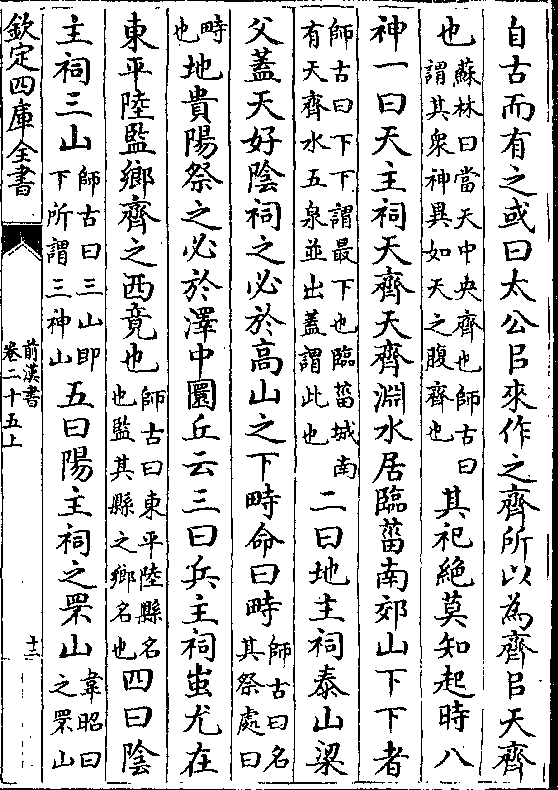 自古而有之或曰太公㠯來作之齊所以為齊㠯天齊
也蘇林曰當天中央齊也師古曰謂其衆神異如天之腹齊也其祀絕莫知起時八
神一曰天主祠天齊天齊淵水居臨菑南郊山下下者
師古曰下下謂最下也臨菑城南有天齊水五泉並出蓋謂此也二曰地主祠泰山梁
父蓋天好陰祠之必於高山之下畤命曰畤師古曰名其祭處曰
畤也地貴陽祭之必於澤中圜丘云三曰兵主祠蚩尤在
東平陸監鄉齊之西竟也師古曰東平陸縣名也監其縣之鄉名也四曰陰
主祠三山師古曰三山即下所謂三神山五曰陽主祠之罘山韋昭曰之罘山
欽定四庫全書
前漢書
卷二十五上
十三